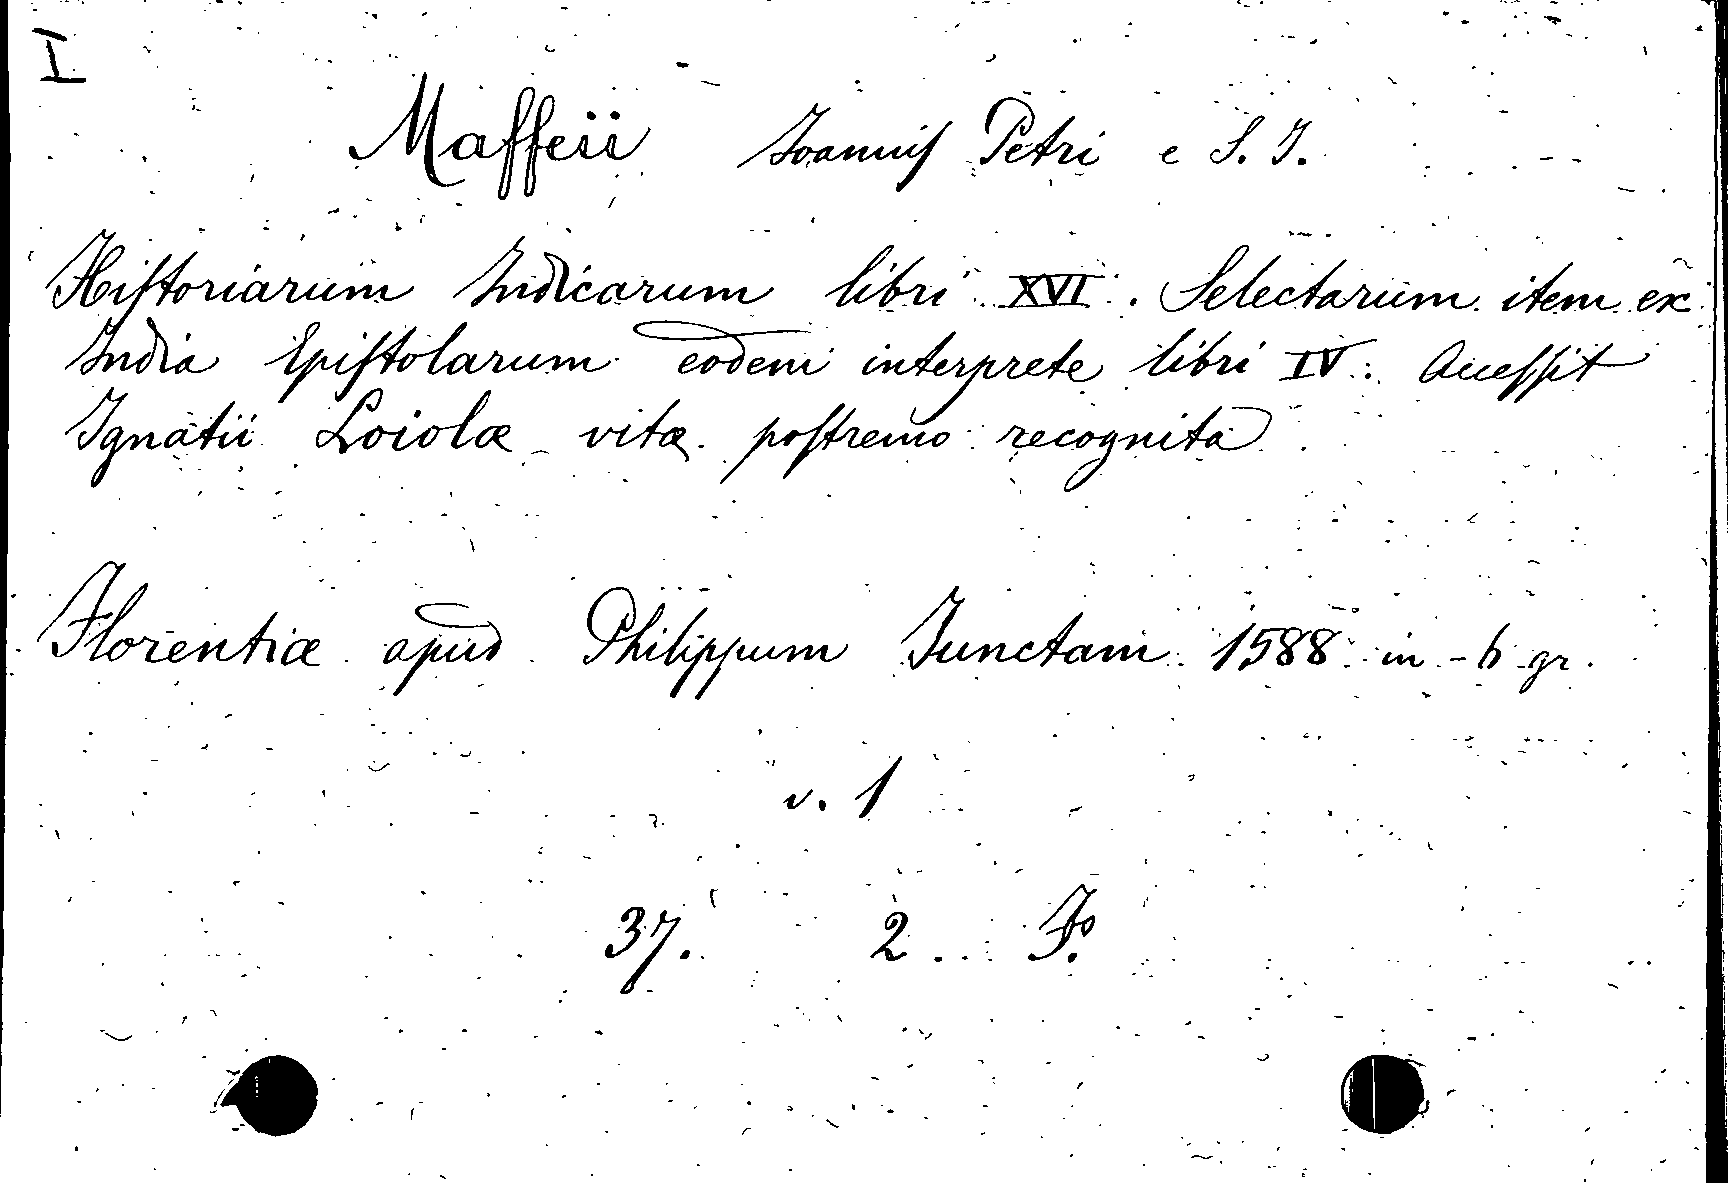 I
Maffeii Joannis Petri e S. J.
Historiarum Indicarum libri XVI. Selectarum item ex
India Epistolarum eodem interprete libri IV. Accessit
Ignatii Loiolæ vita postremo recognita
Florentiæ apud Philippum Junctam 1588 in-6 gr.
v. 1
37. 2.